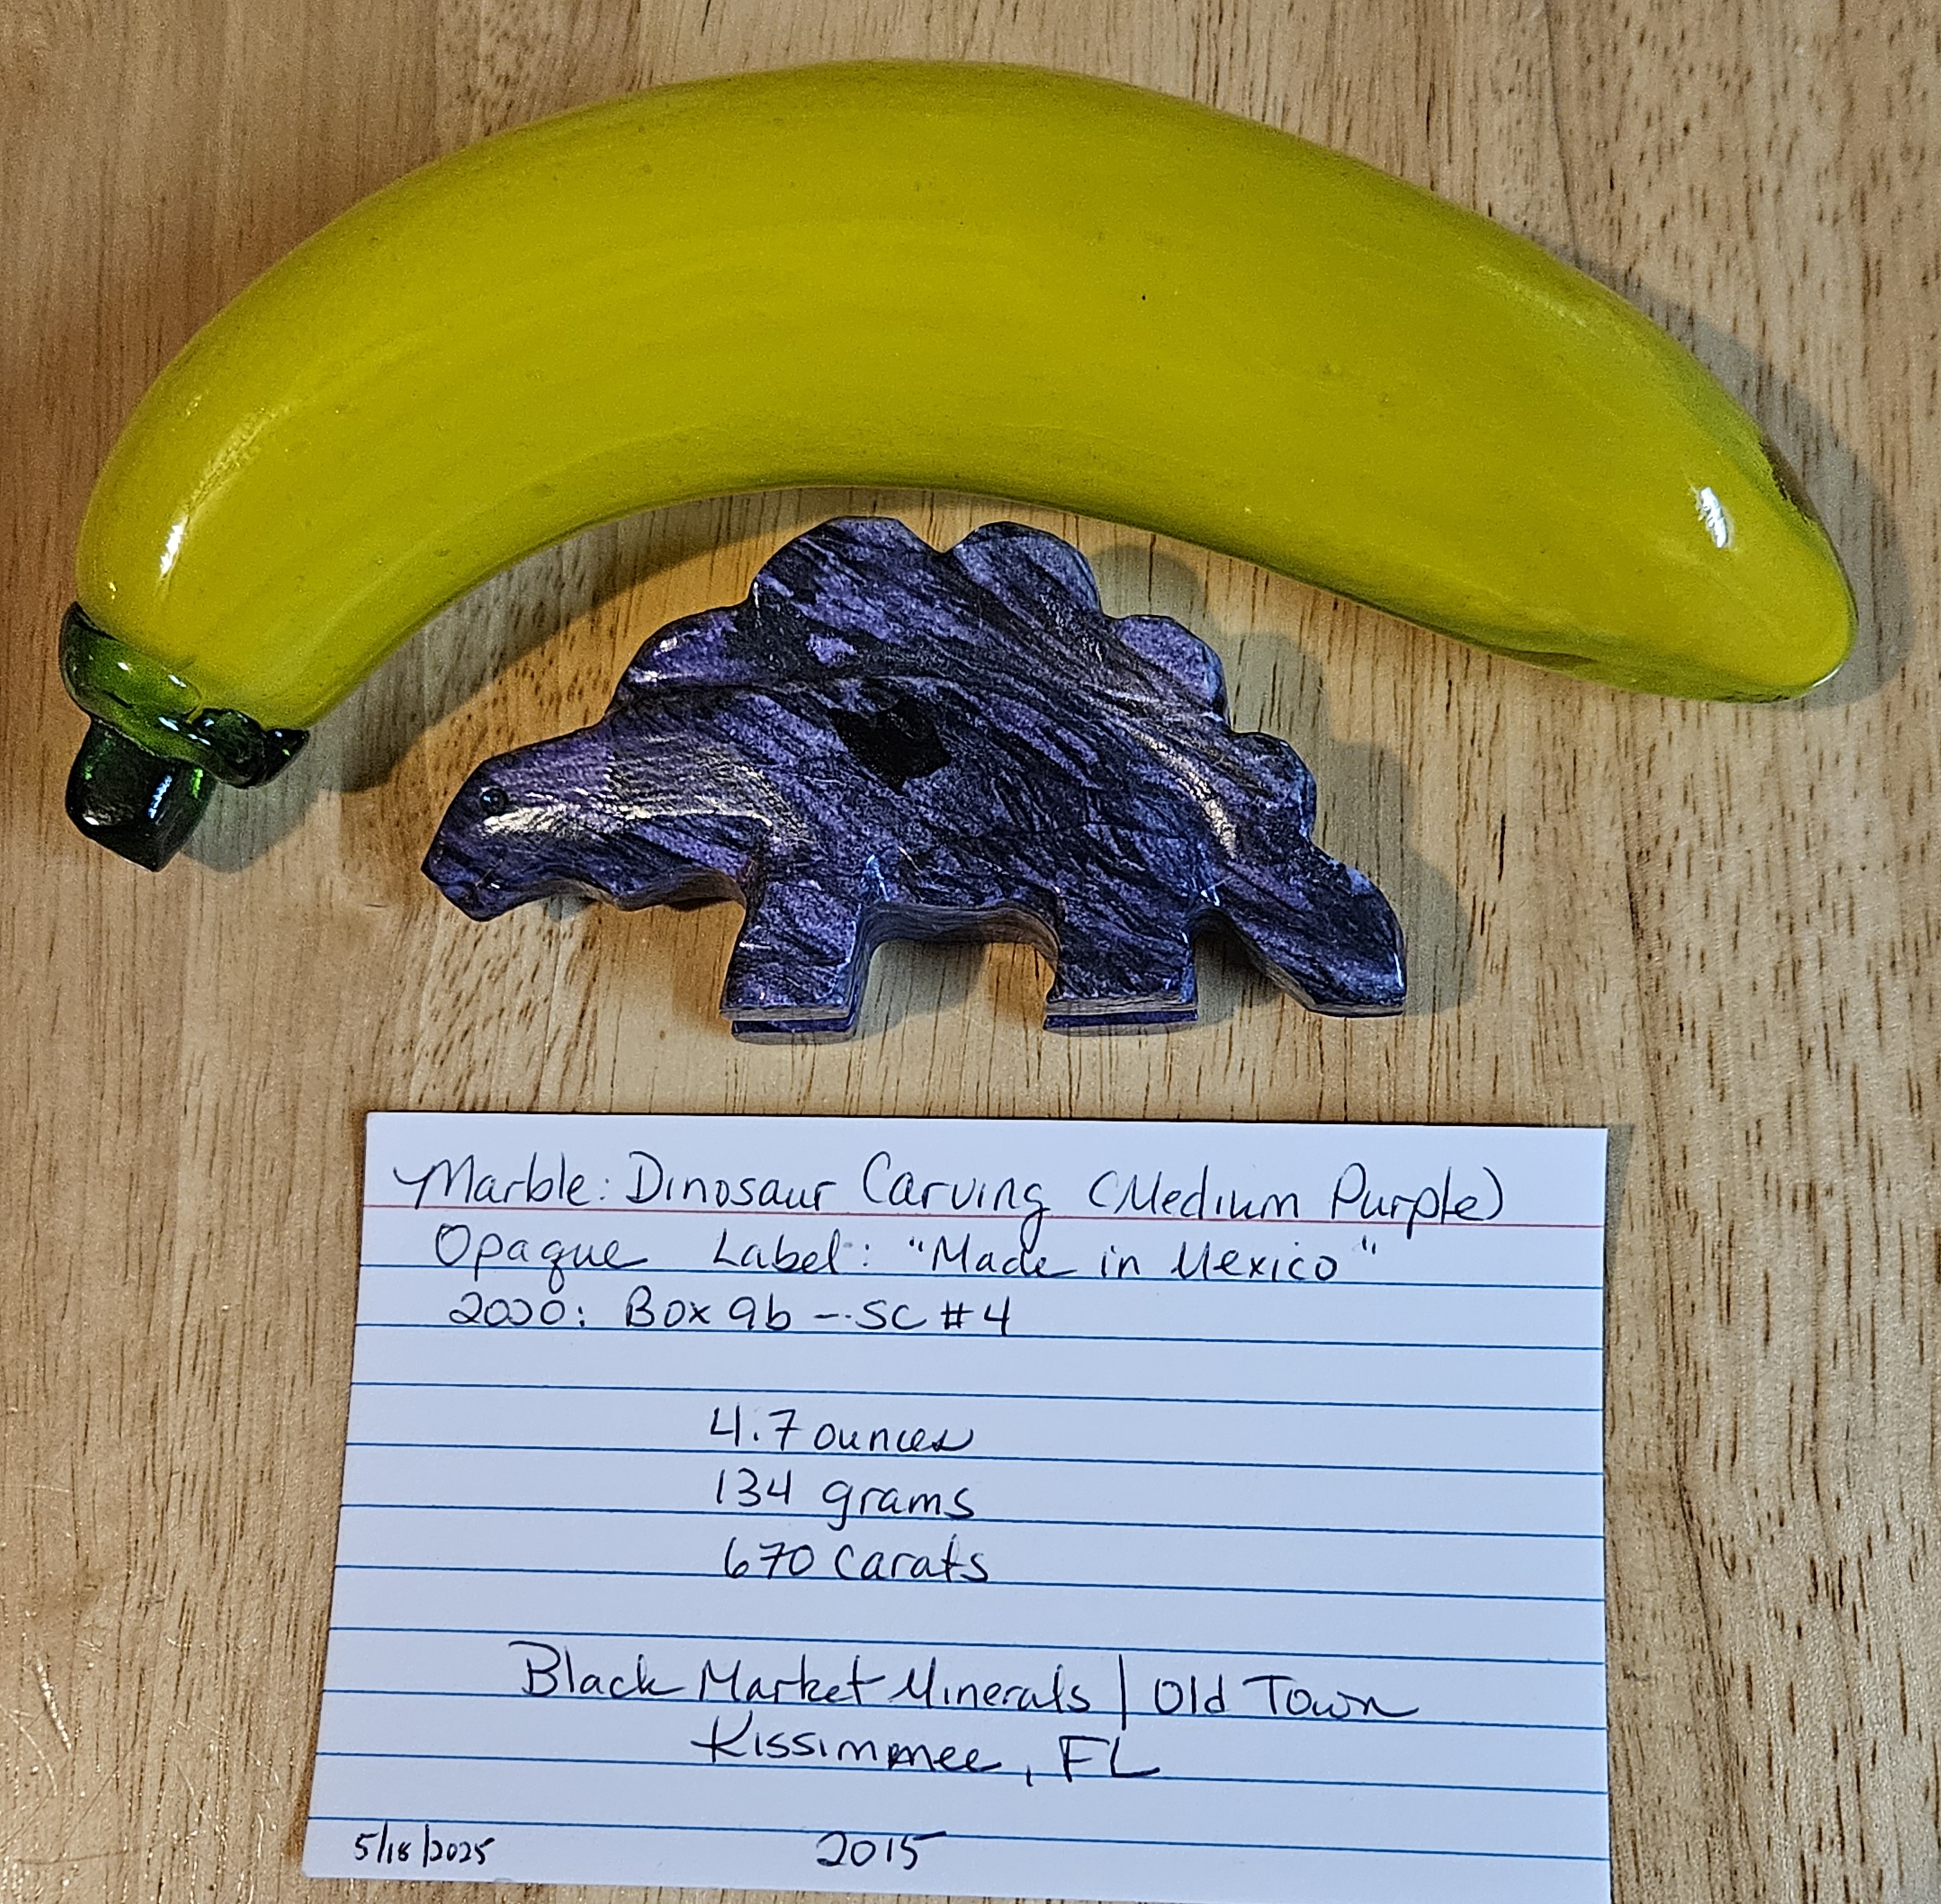 Marble: Dinosaur Carving (Medium Purple)
Opaque Label: "Made in Mexico"
2000: Box 9b -- SC #4
4.7 ounces
134 grams
670 carats
Black Market Minerals | Old Town
Kissimmee, FL
5/18/2025 2015